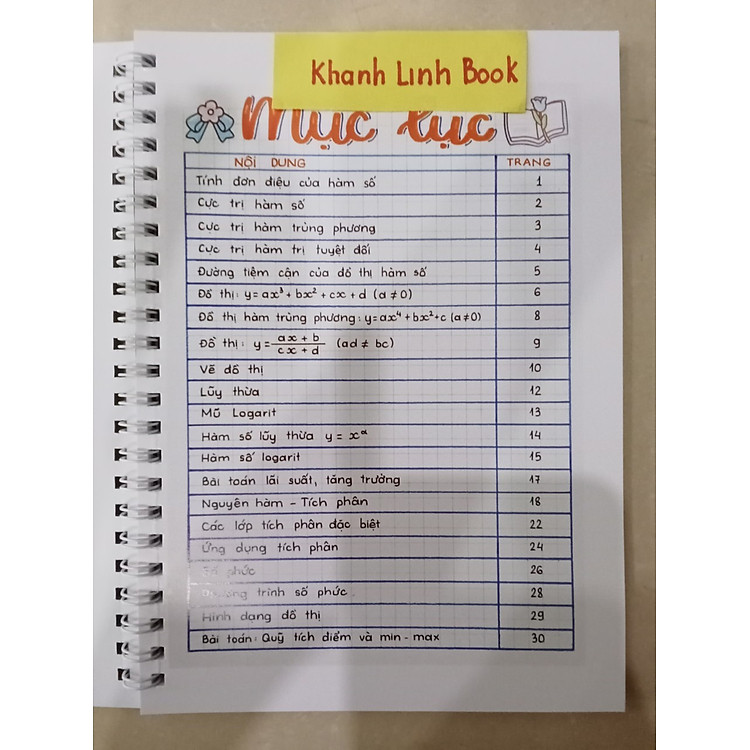 Khanh Linh Book
Mục lục
NỘI DUNG TRANG
Tính đơn điệu của hàm số 1
Cực trị hàm số 2
Cực trị hàm trùng phương 3
Cực trị hàm trị tuyệt đối 4
Đường tiệm cận của đồ thị hàm số 5
Đồ thị: y = ax³ + bx² + cx + d (a ≠ 0) 6
Đồ thị hàm trùng phương: y = ax⁴ + bx² + c (a ≠ 0) 8
Đồ thị: y = (ax + b)/(cx + d) (ad ≠ bc) 9
Vẽ đồ thị 10
Lũy thừa 12
Mũ Logarit 13
Hàm số lũy thừa y = xᵅ 14
Hàm số logarit 15
Bài toán lãi suất, tăng trưởng 17
Nguyên hàm - Tích phân 18
Các lớp tích phân đặc biệt 22
Ứng dụng tích phân 24
Số phức 26
Phương trình số phức 28
Hình dạng đồ thị 29
Bài toán: Quỹ tích điểm và min - max 30